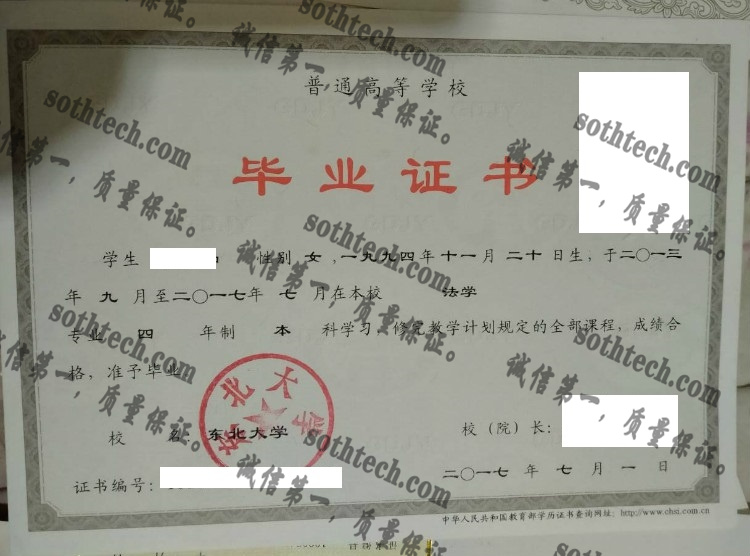 普通高等学校
毕业证书
学生 性别 女 ,一九九四年十一月二十日生，于二〇一三
年 九 月至二〇一七年 七 月在本校 法学
专业 四 年制 本 科学习，修完教学计划规定的全部课程，成绩合
格，准予毕业
校 名：东北大学
校（院）长：
二〇一七 年 七 月 一 日
证书编号：
中华人民共和国教育部学历证书查询网址：http://www.chsi.com.cn
东北大学
sothtech.com
诚信第一，质量保证。
sothtech.com
诚信第一，质量保证。
sothtech.com
诚信第一，质量保证。
sothtech.com
诚信第一，质量保证。
sothtech.com
诚信第一，质量保证。
sothtech.com
诚信第一，质量保证。
sothtech.com
诚信第一，质量保证。
sothtech.com
诚信第一，质量保证。
sothtech.com
诚信第一，质量保证。